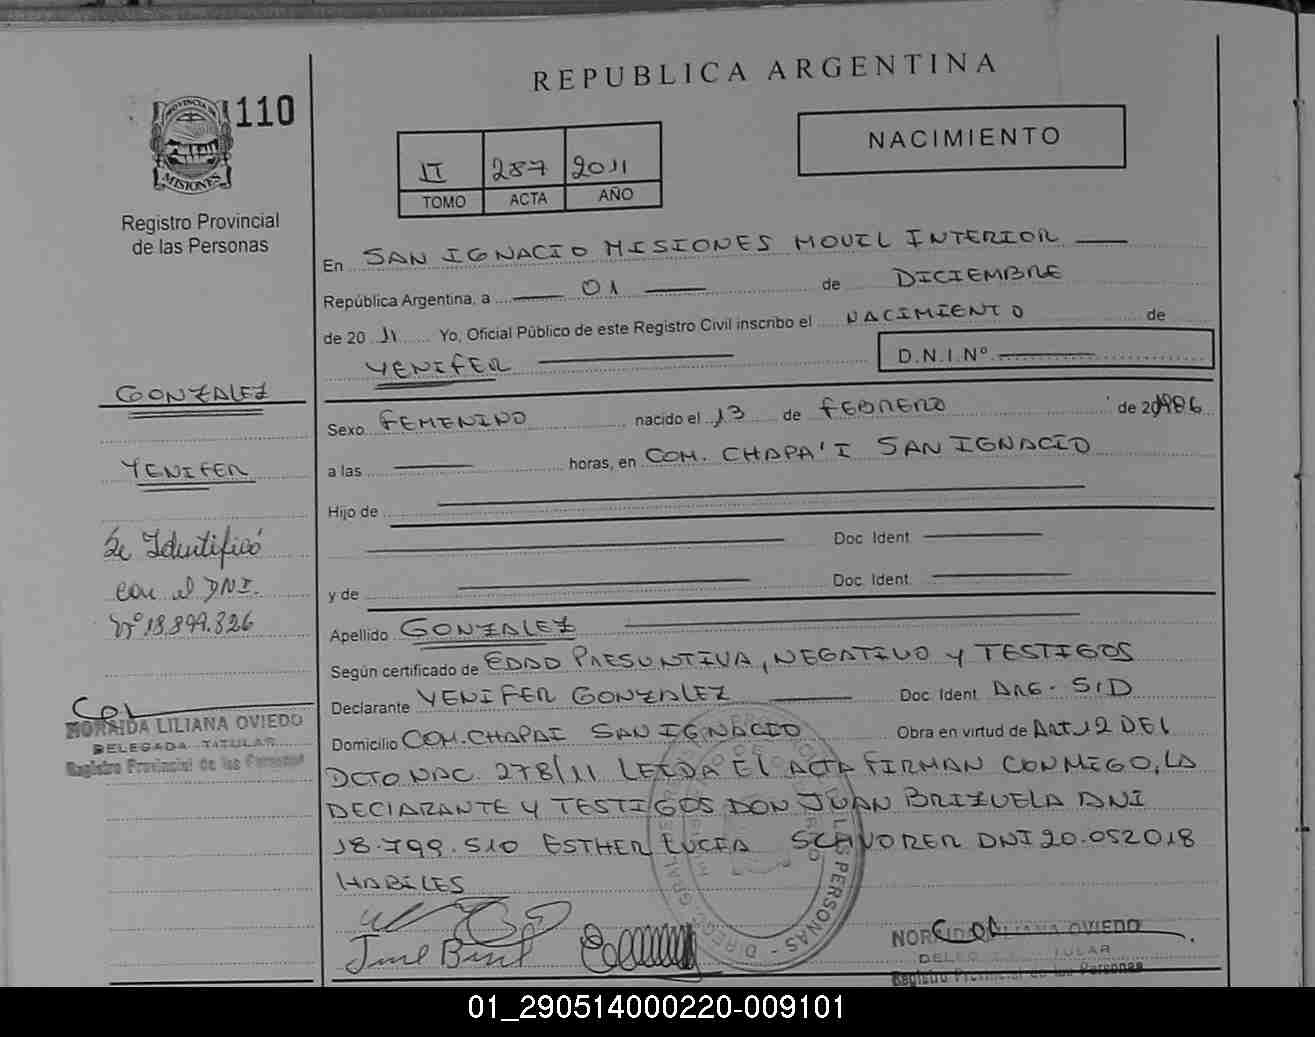 REPUBLICA ARGENTINA
110
PROVINCIA DE
MISIONES
Registro Provincial
de las Personas
II 287 2011
TOMO ACTA AÑO
NACIMIENTO
En SAN IGNACIO MISIONES MOVIL INTERIOR
República Argentina, a 01 de DICIEMBRE
de 20 11 Yo, Oficial Público de este Registro Civil inscribo el NACIMIENTO de
YENIFER D.N.I.Nº
GONZALEZ
YENIFER
Se Identificó
con el DNI.
Nº 18.899.326
NORAIDA LILIANA OVIEDO
DELEGADA TITULAR
Registro Provincial de las Personas
Sexo FEMENINO nacido el 13 de FEBRERO de 20 1986
a las horas, en COM. CHAPA'I SAN IGNACIO
Hijo de
Doc Ident
y de Doc Ident
Apellido GONZALEZ
Según certificado de EDAD PRESUNTIVA, NEGATIVO Y TESTIGOS
Declarante YENIFER GONZALEZ Doc Ident ARG. S/D
Domicilio COM. CHAPAI SAN IGNACIO Obra en virtud de ART. 12 DEL
DCTO NAC. 278/11 LEIDA EL ACTA FIRMAN CONMIGO, LA
DECLARANTE Y TESTIGOS DON JUAN BRIZUELA DNI
18.799.510 ESTHER LUCIA DNI 20.052018
HABILES
OVIEDO
Registro Provincial de las Personas
01_290514000220-009101